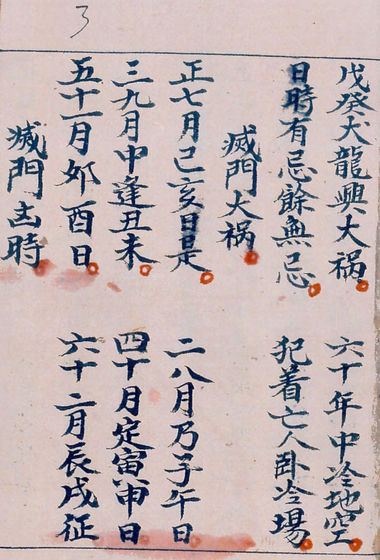 3
戊癸犬龍興大祸
六十年中冷地空
日時有忌餘無忌
犯着亡人卧冷場
滅門大祸
正七月己亥日是
二八月乃子午日
三九月中逢丑未
四十月定寅申日
五十一月夘酉日
六十二月辰戌征
滅門時